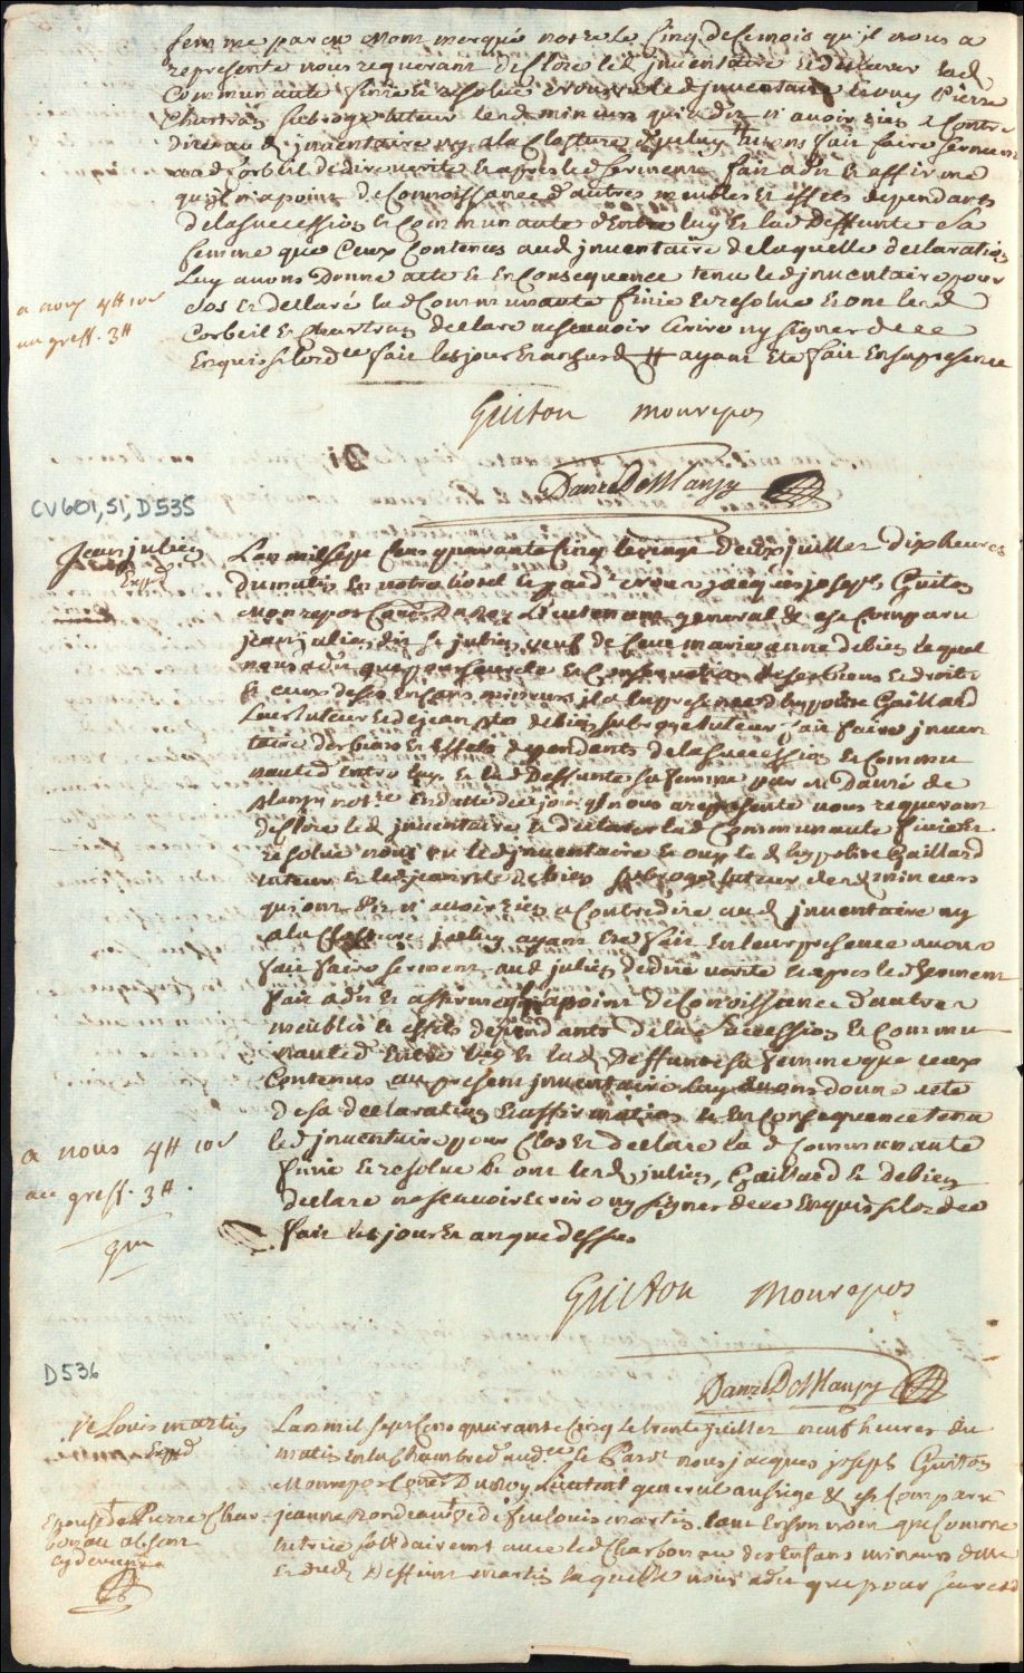 femme par eu Mom merqué notre le Cinq de ce mois qu'il nous a
representé nous requerant de Clore led jnventaire et declarer lad
Communauté finie et resolue avons led jnventaire et ouy Pierre
Chartran subrogé tuteur desd mineurs qui a dit n'avoir rien a Contre
dire au d jnventaire ny a la Closture d'yceluy # avons fait faire serment
aud Corbeil de dire verité et apres led serment fait a dit et affirmé
qu'il n'a point de Connoissance d'autres meubles et effets dependants
de la succession et Communauté d'Entre luy et lad Deffunte sa
femme que Ceux Contenus aud jnventaire de laquelle declaration
Luy avons Donné acte et en Consequence tenu led jnventaire pour
Clos et declaré lad Communauté finie et resolue et ont lesd
Corbeil et Chartran declaré ne scavoir ecrire ny signer de ce
Enquis s. lordce fait les jour et an susd # ayant eté fait En sa presence
a nous 4# 10s
au greff. 3#
Guiton Monrepos
Danré DeBlanzy
CV601,S1,D535
Jean julien
Expd
L'an mil sept Cens quarante Cinq le vingt deux juillet dix heures
du matin en notre hotel et pardt nous jacques joseph Guiton
Monrepos Coner Du Roy Lieutenant general & est Comparu
jean julien dit St julien veuf de feue marie anne debien lequel
nous a dit que pour seureté et Conservation de ses biens et droits
et ceux de ses enfans mineurs il a en presence d'hypolite Gaillard
Leur tuteur et de jean Bte debien subrogé tuteur fait faire jnven
taire des biens et effets dependants de la succession et Commu
nauté d'Entre luy et lad Deffunte sa femme par Me Danré de
Blanzy notre En datte de ce jour qu'il nous a representé nous requerant
de Clore led jnventaire et declarer lad Communauté finie et
resolue nous vu led jnventaire et ouy led hypolite Gaillard
tuteur et led jean Bte debien subrogé tuteur desd mineurs
qui ont dit n'avoir rien a Contredire aud jnventaire ny
a la Closture jceluy ayant eté fait en leur presence avons
fait faire serment aud julien de dire verité et apres led serment
fait a dit et affirmé qu'il n'a point de Connoissance d'autres
meubles et effets dependants de la Succession et Commu
nauté d'Entre luy et lad Deffunte sa femme que ceux
Contenus au present jnventaire luy avons donné acte
de sa declaration et affirmation et en Consequence tenu
led jnventaire pour Clos et declaré lad Communauté
finie et resolue et ont lesd julien, Gaillard et debien
declaré ne scavoir ecrire ny signer de ce Enquis s. lordce
fait les jour et an que dessus
a nous 4# 10s
au greff. 3#.
Guiton Monrepos
Danré DeBlanzy
D536
Ve Louis martin
Expd
L'an mil sept Cens quarante Cinq le trente juillet neuf heures du
matin en la Chambre d'audce et Pardt nous jacques joseph Guiton
Monrepos Coner Du Roy Lieutent general au siege & est Comparue
Epouse de Pierre Char
bonau absent
cy devant
jeanne Rondeau Ve de feu Louis martin tant en son nom que Comme
tutrice solidairement avec led Charbonau des Enfans mineurs d'elle
et dud Deffunt martin laquelle nous a dit que pour seureté